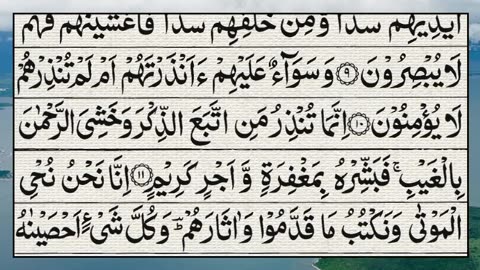 اَیْدِیْهِمْ سَدًّا وَّمِنْ خَلْفِهِمْ سَدًّا فَاَغْشَیْنٰهُمْ فَهُمْ
لَا یُبْصِرُوْنَ ۹ وَسَوَآءٌ عَلَیْهِمْ ءَاَنْذَرْتَهُمْ اَمْ لَمْ تُنْذِرْهُمْ
لَا یُؤْمِنُوْنَ ۱۰ اِنَّمَا تُنْذِرُ مَنِ اتَّبَعَ الذِّكْرَ وَخَشِیَ الرَّحْمٰنَ
بِالْغَیْبِ ۚ فَبَشِّرْهُ بِمَغْفِرَةٍ وَّاَجْرٍ كَرِیْمٍ ۱۱ اِنَّا نَحْنُ نُحْیِ
الْمَوْتٰی وَنَكْتُبُ مَا قَدَّمُوْا وَاٰثَارَهُمْ ؕ وَكُلَّ شَیْءٍ اَحْصَیْنٰهُ